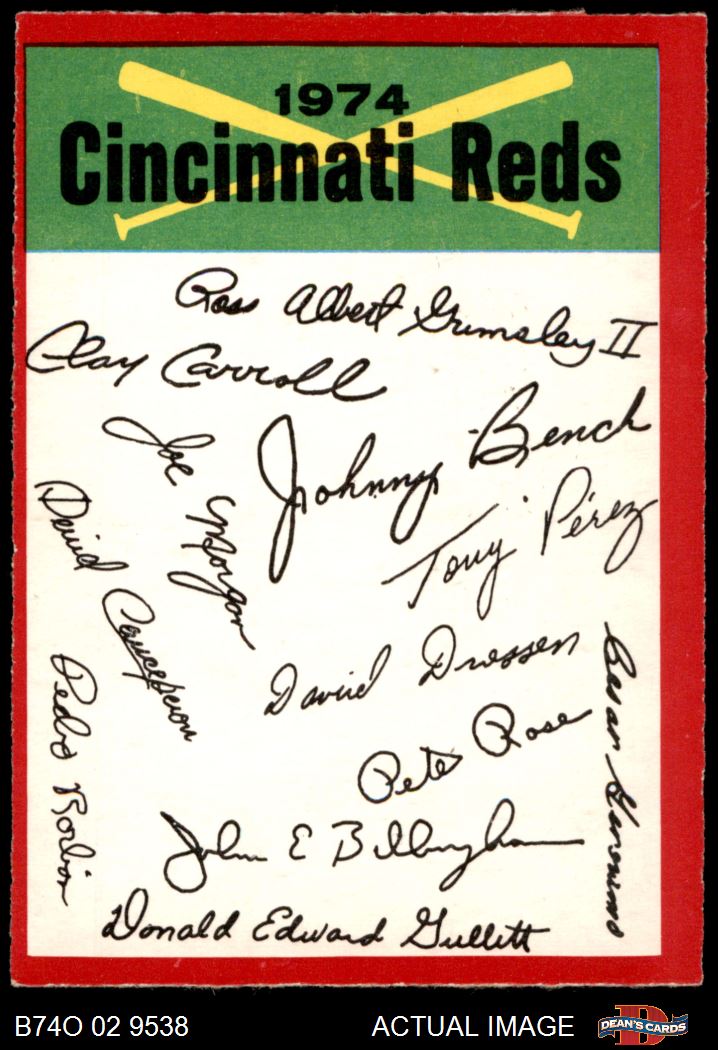 1974
Cincinnati Reds
Ross Albert Grimsley II
Clay Carroll
Johnny Bench
Joe Morgan
Tony Pérez
David Concepcion
David Driessen
Pedro Borbon
Pete Rose
Cesar Geronimo
John E Billingham
Donald Edward Gullett
B74O 02 9538
ACTUAL IMAGE
D
DEAN'S CARDS